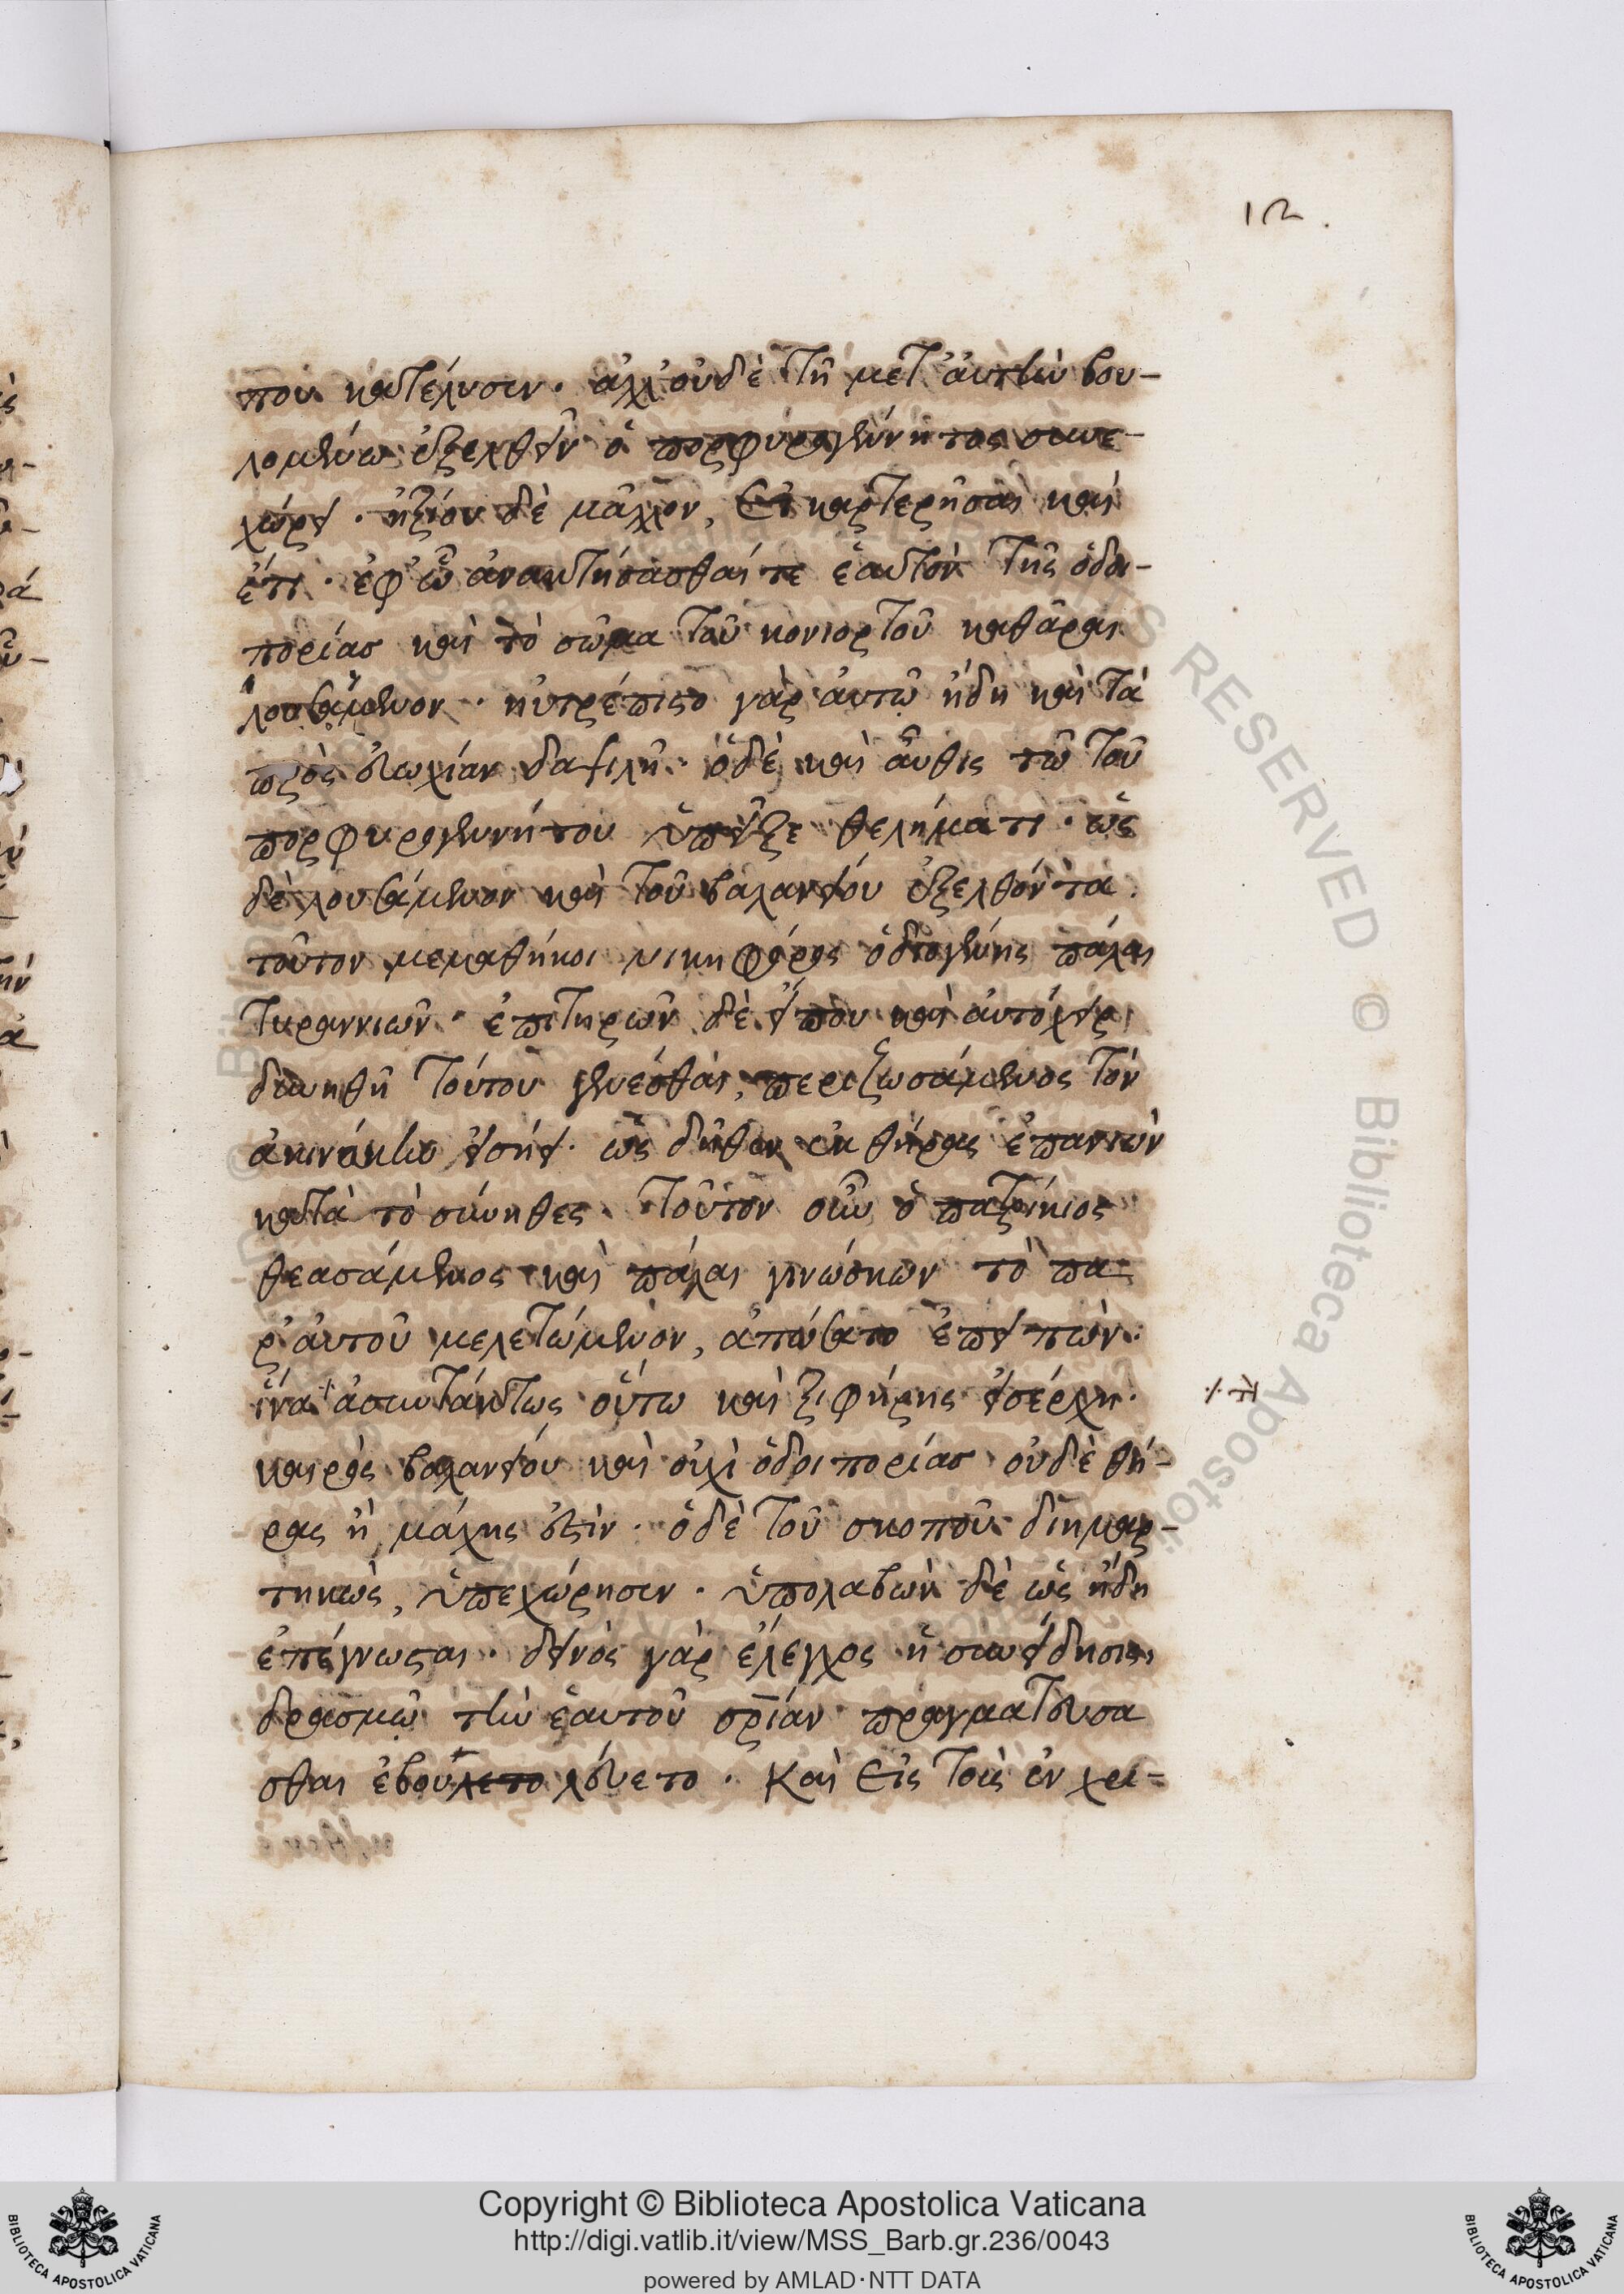 12.
που κατέλυσεν. ἀλλ' οὐδὲ τῆ μετ' αὐτὴν βου-
λομένω ἐξελθεῖν ὁ πορφυρογέννητος συνε-
χώρει. ἠξίου δὲ μᾶλλον, ἐγκαρτερῆσαι καὶ
ἔτι. ἐφ' ᾧ ἀνακτήσασθαί τε ἑαυτὸν τῆς ὁδοι-
πορίας καὶ τὸ σῶμα τοῦ κονιορτοῦ καθᾶραι
λουσάμενον. ηὐτρέπιστο γὰρ αὐτῷ ἤδη καὶ τὰ
πρὸς εὐωχίαν δαψιλῆ. ὁ δὲ καὶ αὖθις τῶ τοῦ
πορφυρογεννήτου ὑπεῖξε θελήματι. ὡς
δὲ λουσάμενον καὶ τοῦ βαλανείου ἐξελθόντα
τοῦτον μεμαθήκοι νικηφόρος ὁ διογένης πάλαι
τυραννιῶν. ἐπιτηρῶν δὲ εἴπου καὶ αὐτόχειρ
δυνηθῆ τούτου γενέσθαι, περιζωσάμενος τὸν
ἀκινάκην εἰσήει. ὡς δῆθεν ἐκ θήρας ἐπανιὼν
κατὰ τὸ σύνηθες. τοῦτον οὖν ὁ πατζίκιος
θεασάμενος καὶ πάλαι γινώσκων τὸ πα
ρ' αὐτοῦ μελετώμενον, ἀπώσατο ἐπειπών.
ἵνα τί ἀσυντάκτως οὕτω καὶ ξιφήρης εἰσέρχη.
καιρὸς βαλανείου καὶ οὐχὶ ὁδοιπορίας οὐδὲ θή-
ρας ἢ μάχης ἐστίν. ὁ δὲ τοῦ σκοποῦ διημαρ-
τηκώς, ὑπεχώρησεν. ὑπολαβὼν δὲ ὡς ἤδη
ἐπέγνωσται. δεινὸς γὰρ ἔλεγχος ἡ συνείδησις,
δρασμῷ τὴν ἑαυτοῦ σρίαν πραγματεύσα
σθαι ἐβουλεύετο. Καὶ εἰς τοὺς ἐν χρι-
Copyright © Biblioteca Apostolica Vaticana
http://digi.vatlib.it/view/MSS_Barb.gr.236/0043
powered by AMLAD·NTT DATA
BIBLIOTECA APOSTOLICA VATICANA
BIBLIOTECA APOSTOLICA VATICANA